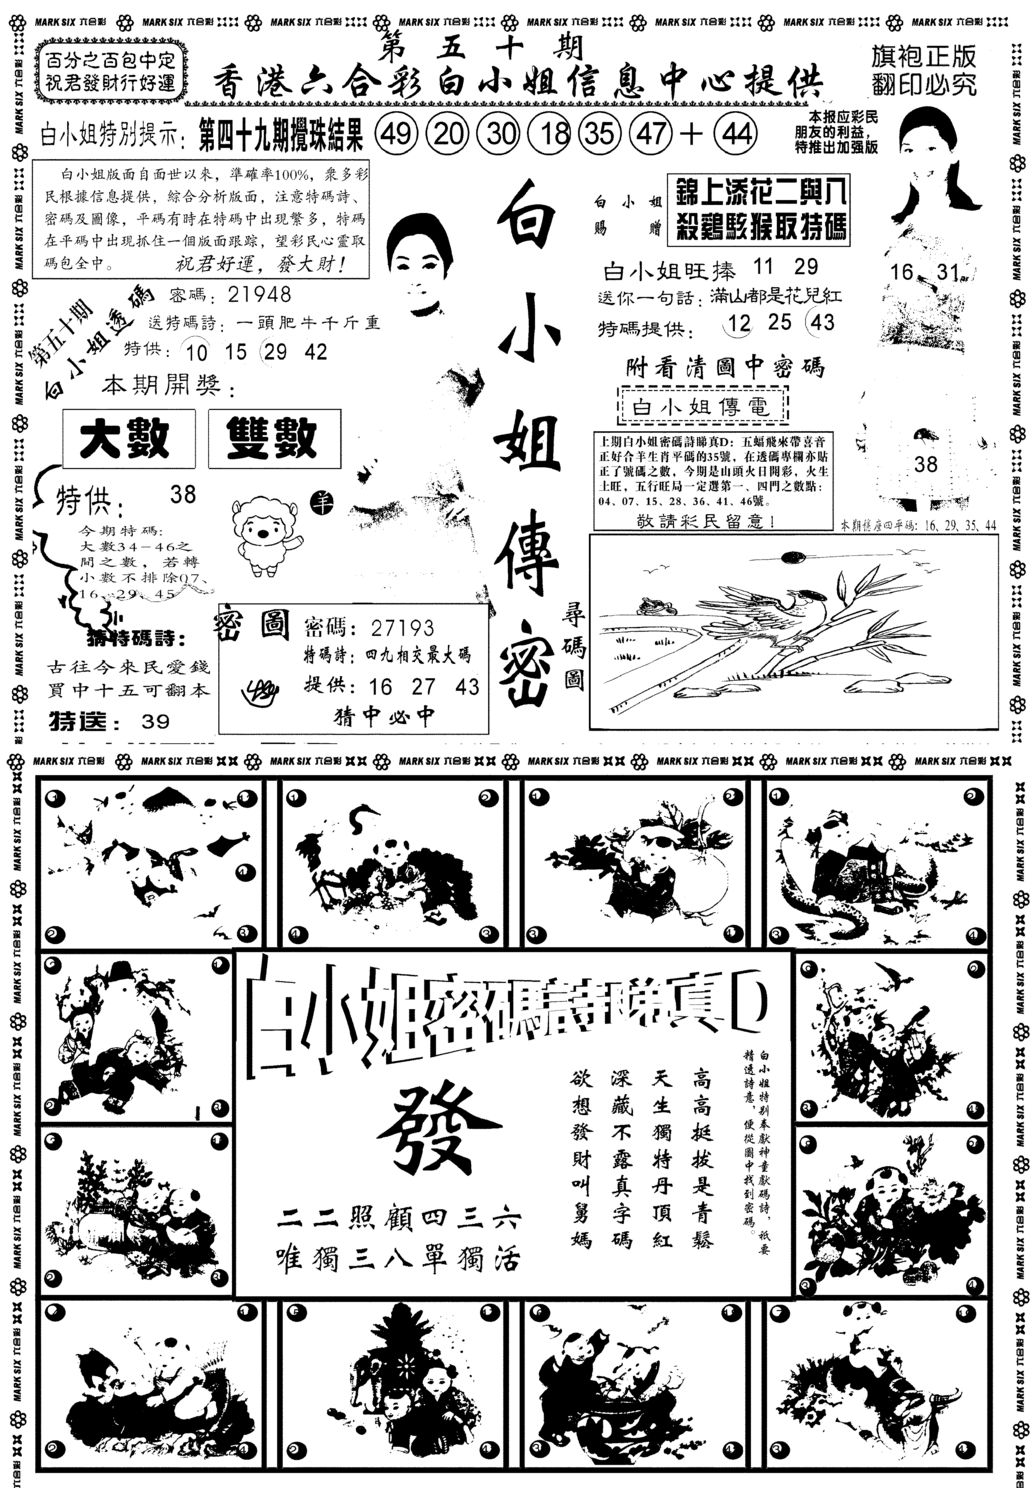 MARK SIX 六合彩
第五十期
百分之百包中定
祝君發財行好運
香港六合彩白小姐信息中心提供
旗袍正版
翻印必究
白小姐特別提示:第四十九期攪珠結果 49 20 30 18 35 47 + 44
本报应彩民
朋友的利益,
特推出加强版
白小姐版面自面世以來,準確率100%,衆多彩
民根據信息提供,綜合分析版面,注意特碼詩、
密碼及圖像,平碼有時在特碼中出現繁多,特碼
在平碼中出現抓住一個版面跟踪,望彩民心靈取
碼包全中。 祝君好運,發大財!
第五十期
白小姐透碼
密碼:21948
送特碼詩:一頭肥牛千斤重
特供:10 15 29 42
本期開獎:
大數 雙數
特供: 38
羊
今期特碼:
大數34-46之
間之數,若轉
小數不排除07、
16、29、45
小
猜特碼詩:
古往今來民愛錢
買中十五可翻本
特送:39
密圖
密碼:27193
特碼詩:四九相交最大碼
提供:16 27 43
猜中必中
白小姐傳密
白小姐
賜贈
錦上添花二與八
殺鷄駭猴取特碼
白小姐旺捧 11 29
送你一句話:滿山都是花兒紅
特碼提供: 12 25 43
附看清圖中密碼
白小姐傳電
上期白小姐密碼詩睇真D:五蝠飛來帶喜音
正好合羊生肖平碼的35號,在透碼專欄亦貼
正了號碼之數,今期是山頭火日開彩,火生
土旺,五行旺局一定選第一、四門之數點:
04、07、15、28、36、41、46號。
敬請彩民留意!
16 31
38
本期信座四平碼:16、29、35、44
尋碼圖
白小姐密碼詩睇真D
發
二二照顧四三六
唯獨三八單獨活
白小姐特別奉獻神童獻碼詩,祇要
精透詩意,便從圖中找到密碼。
高高挺拔是青鬆
天生獨特丹頂紅
深藏不露真字碼
欲想發財叫舅媽